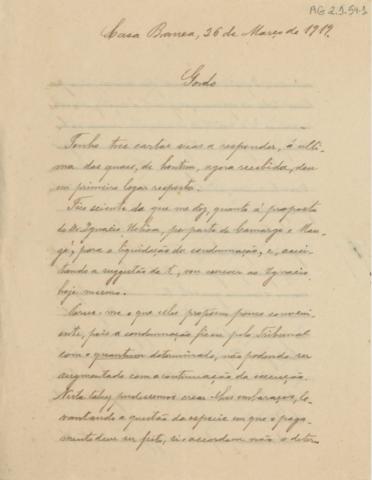 AG 2.1.54-1
Casa Branca, 26 de Março de 1919.
Gordo
Tenho tres cartas suas a responder, á ulti-
ma das quaes, de hontem, agora recebida, dou
em primeiro logar resposta.
Fico sciente do que me diz, quanto á proposta
do Dr. Ignacio Uchôa, por parte de Camargo e
para a liquidação da condemnação, e, accei-
tando a suggestão de t, vou escrever ao Ignacio
hoje mesmo.
me o que elles propõem pouco conveni-
ente, pois a condemnação ficou pelo Tribunal
com o quantum determinado, não podendo ser
augmentado com a continuação da execução.
Nisto talvez pudessemos crear-lhes embaraços, le-
vantando a questão da especie em que o paga-
mento deve ser feito, si o accordam não o deter-